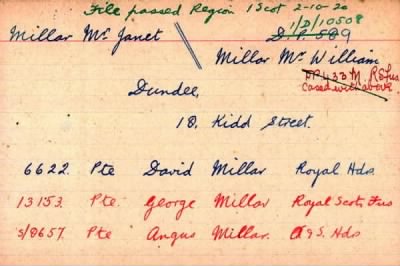 File passed Region 1 Scot 2-10-20
1/D/10508
Millar Mrs Janet
D.P. 599
Millar Mr William
DP433 M. RSFus
Cased with above
Dundee,
18, Kidd Street.
6622. Pte David Millar Royal Hdrs.
13153. Pte. George Millar Royal Scots Fus
S/8657. Pte Angus Millar. A & S. Hdrs